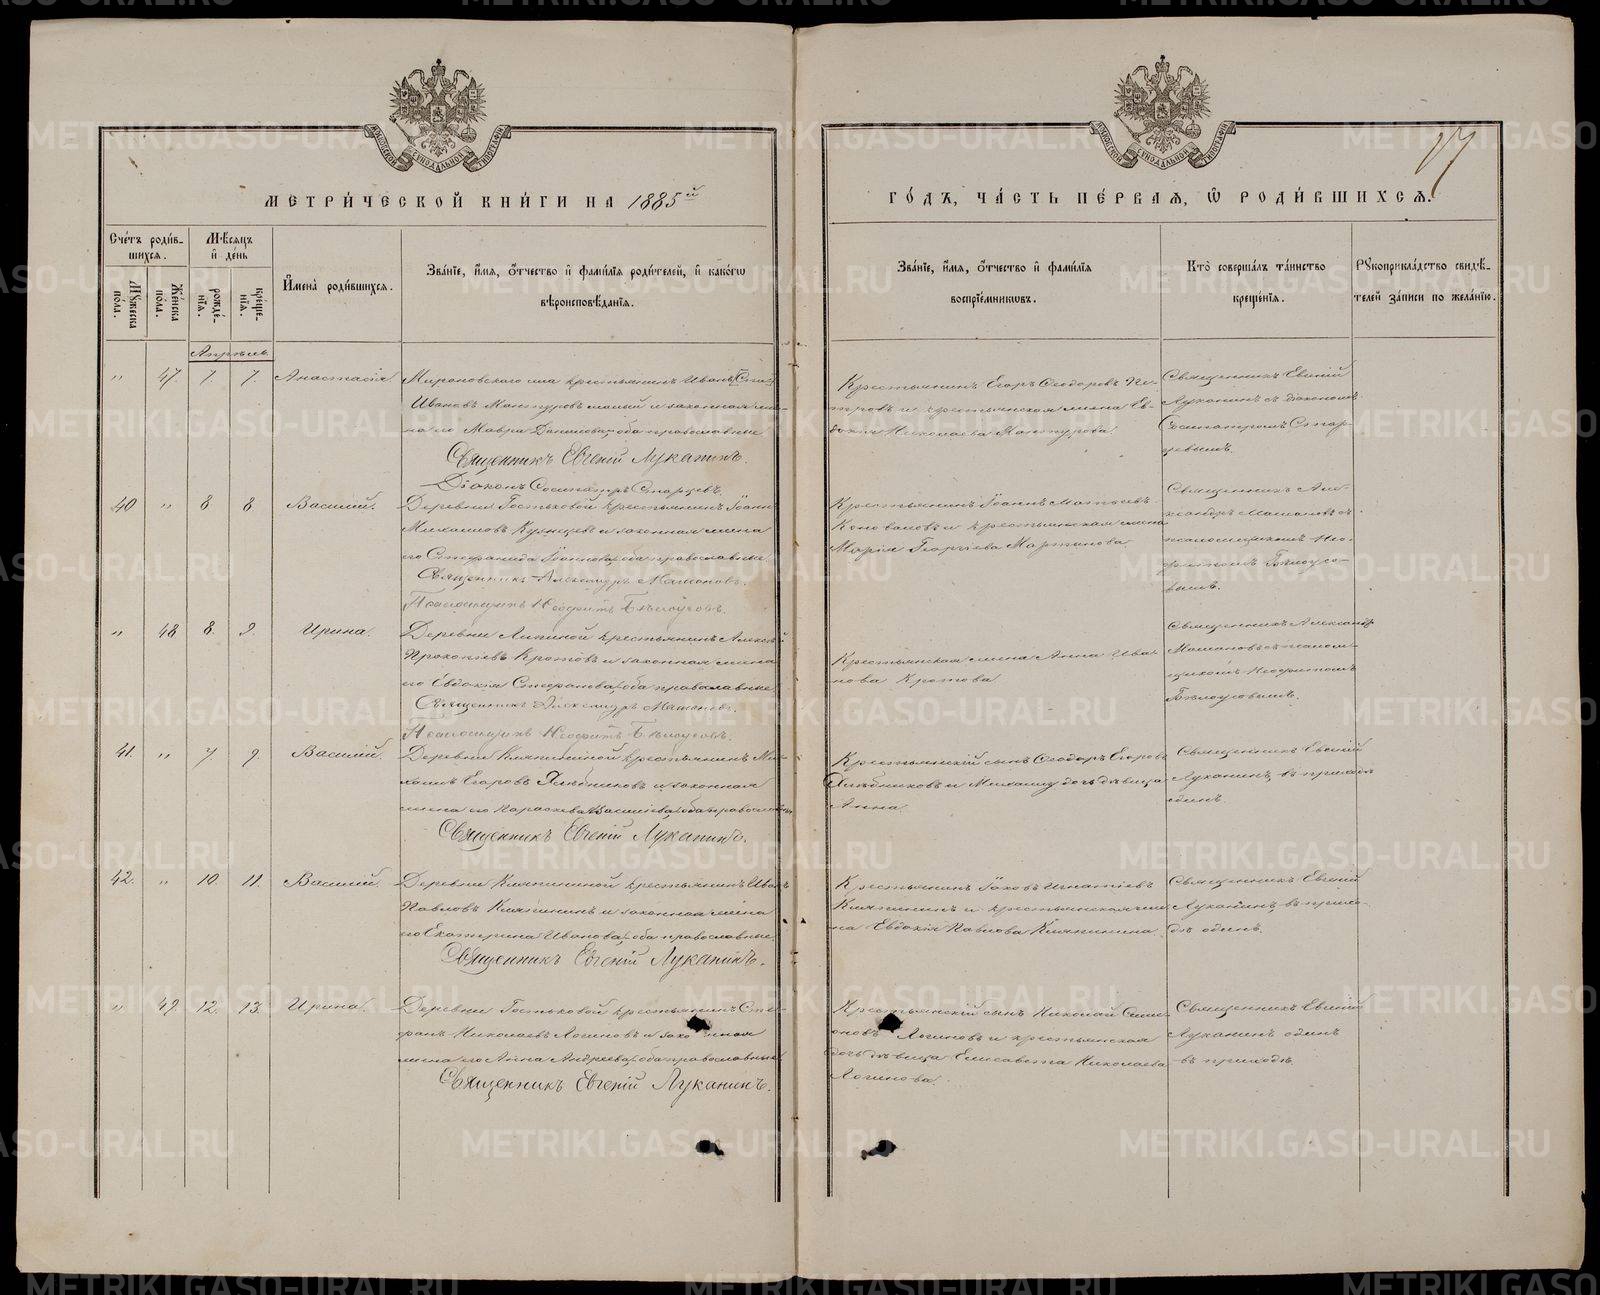 МЕТРИ́ЧЕСКОЙ КНИ́ГИ НА 1885й
ГО́ДЪ, ЧА́СТЬ ПЕ́РВАЯ, Ѡ РОДИ́ВШИХСЯ.
17
Сче́тъ роди́в-
шихся.
Мѣ́сяцъ
и҆ де́нь
Мꙋ́жеска
по́ла.
Же́нска
по́ла.
рожде́-
нїя.
креще́-
нїя.
И҆мена̀ роди́вшихся.
Зва́нїе, и҆́мя, ѻ҆́тчество и҆ фами́лїя роди́телей, и҆ како́гѡ
вѣроисповѣ́данїя.
Зва́нїе, и҆́мя, ѻ҆́тчество и҆ фами́лїя
воспрїе́мникωвъ.
Кто̀ соверша́лъ та́инство
креще́нїя.
Рꙋкоприкла́дство свидѣ́-
телей за́писи по жела́нїю.
Апрѣль
" 47. 7. 7. Анастасія. Мироновскаго села крестьянинъ Иванъ
Ивановъ Мантуровъ малый и законная же-
на его Мавра Данилова, оба православные.
Священникъ Евгеній Луканинъ.
Діаконъ Сосипатръ Старцевъ.
Крестьянинъ Егоръ Ѳеодоровъ Пе-
тровъ и крестьянская жена Ев-
докія Николаева Мантурова.
Священникъ Евгеній
Луканинъ съ діакономъ
Сосипатромъ Стар-
цевымъ.
40 " 8 8 Василій. Деревни Гостьковой крестьянинъ Іоаннъ
Михаиловъ Кузнецовъ и законная жена
его Стефанида Іоаннова, оба православные.
Священникъ Александръ Мамоновъ.
Псаломщикъ Неофитъ Бѣлоусовъ.
Крестьянинъ Іоаннъ Матѳеевъ
Коноваловъ и крестьянская жена
Марія Георгіева Мартынова.
Священникъ Але-
ксандръ Мамоновъ съ
псаломщикомъ Нео-
фитомъ Бѣлоусо-
вымъ.
" 48 8. 9. Ирина. Деревни Липиной крестьянинъ Алексѣй
Прокопіевъ Кротовъ и законная жена
его Евдокія Стефанова, оба православные.
Священникъ Александръ Мамоновъ.
Псаломщикъ Неофитъ Бѣлоусовъ.
Крестьянская жена Анна Ива-
нова Кротова
Священникъ Александръ
Мамоновъ съ псалом-
щикомъ Неофитомъ
Бѣлоусовымъ.
41. " 7 9. Василій. Деревни Кляпиной крестьянинъ Ми-
хаилъ Егоровъ Хлѣбниковъ и законная
жена его Параскева Василіева, оба православные
Священникъ Евгеній Луканинъ.
Крестьянскій сынъ Ѳеодоръ Егоровъ
Хлѣбниковъ и дочь дѣвица
Анна
Священникъ Евгеній
Луканинъ, въ приходѣ
одинъ.
42. " 10. 11. Василій. Деревни Кляпиной крестьянинъ Иванъ
Павловъ Кляпинъ и законная жена
его Екатерина Иванова, оба православные.
Священникъ Евгеній Луканинъ.
Крестьянинъ Іаковъ Игнатіевъ
Кляпининъ и крестьянская же-
на Евдокія Павлова Кляпинина.
Священникъ Евгеній
Луканинъ, въ прихо-
дѣ одинъ.
" 49. 12. 13. Ирина. Деревни Гостьковой крестьянинъ Сте-
фанъ Николаевъ Логиновъ и законная
жена его Анна Андреева, оба православные.
Священникъ Евгеній Луканинъ.
Крестьянскій сынъ Николай Симе-
оновъ Логиновъ и крестьянская
дочь дѣвица Елисавета Николаева
Логинова.
Священникъ Евгеній
Луканинъ одинъ
въ приходѣ.
METRIKI.GASO-URAL.RU